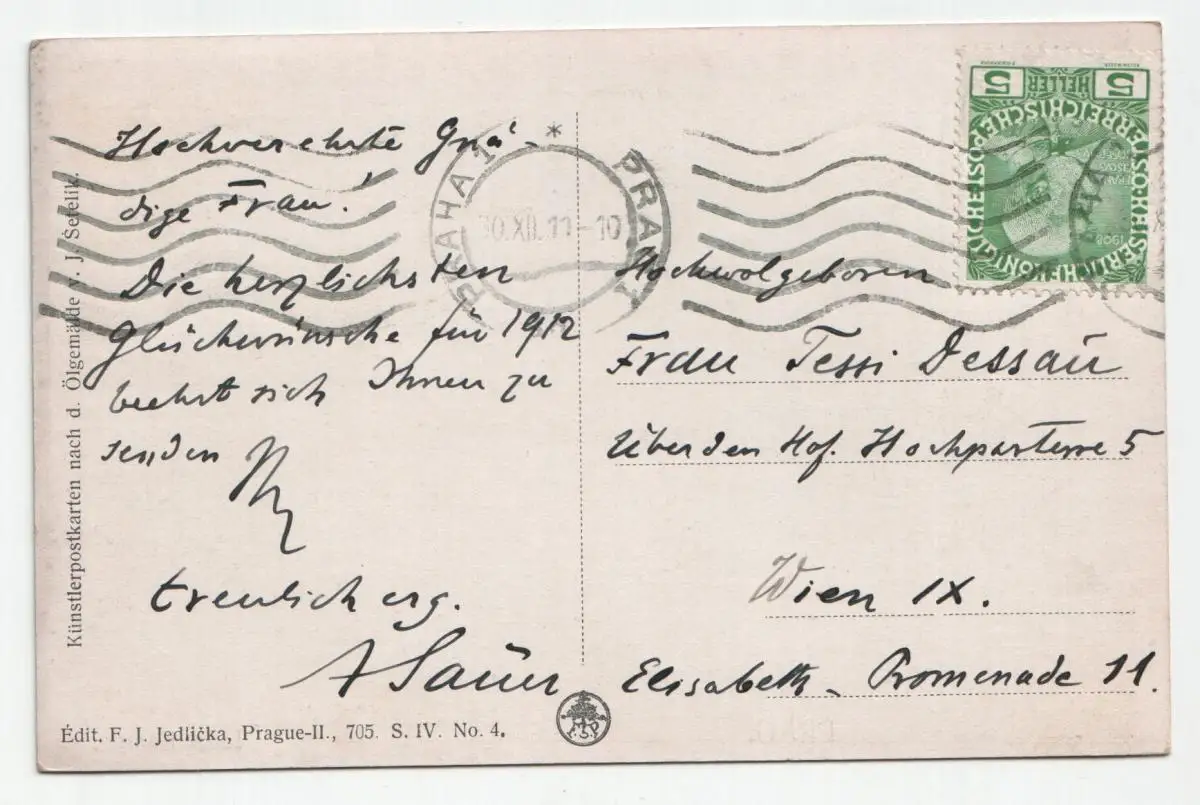 Hochverehrte Gnä-
dige Frau!
Die herzlichsten
Glückwünsche für 1912
beehrt sich Ihnen zu
senden Ihr
treulich erg.
A Sauer
Künstlerpostkarten nach d. Ölgemälde v. J. Šetelik.
Édit. F. J. Jedlička, Prague-II., 705. S. IV. No. 4.
PRAHA 1 * PRAG 1
30.XII.11-10
5 HELLER 5
1908
Hochwolgeboren
Frau Tessi Dessau
Über den Hof. Hochparterre 5
Wien IX.
Elisabeth-Promenade 11.